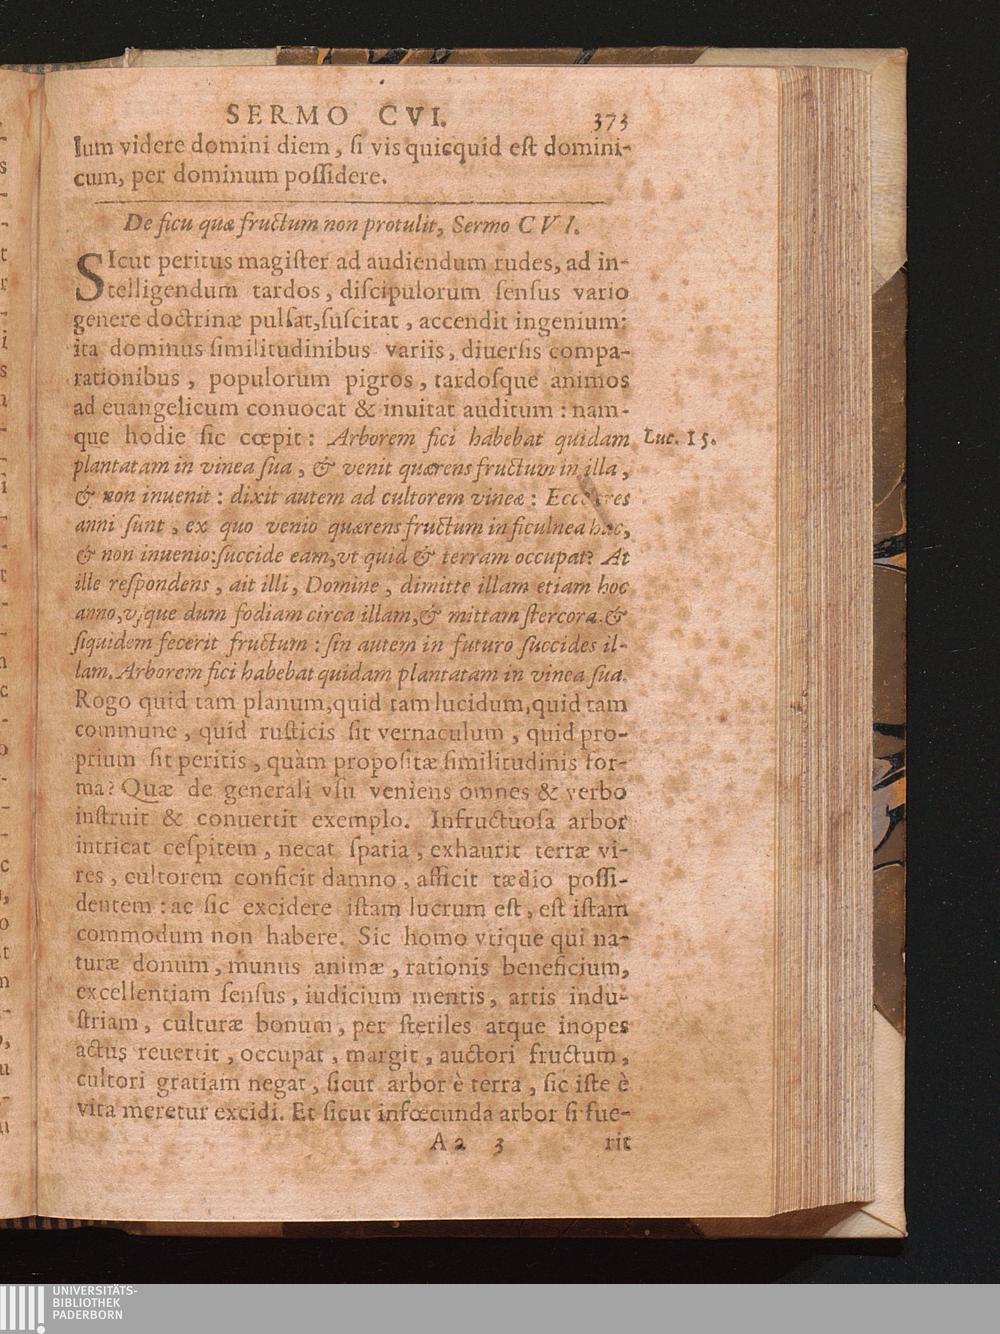 SERMO CVI. 373
lum videre domini diem, si vis quicquid est domini-
cum, per dominum possidere.
De ficu quæ fructum non protulit, Sermo CVI.
SIcut peritus magister ad audiendum rudes, ad in-
telligendum tardos, discipulorum sensus vario
genere doctrinæ pulsat, suscitat, accendit ingenium:
ita dominus similitudinibus variis, diuersis compa-
rationibus, populorum pigros, tardosque animos
ad euangelicum conuocat & inuitat auditum: nam-
que hodie sic cœpit: Arborem fici habebat quidam
Luc. 15.
plantatam in vinea sua, & venit quærens fructum in illa,
& non inuenit: dixit autem ad cultorem vineæ: Ecce tres
anni sunt, ex quo venio quærens fructum in ficulnea hac,
& non inuenio: succide eam, vt quid & terram occupat? At
ille respondens, ait illi, Domine, dimitte illam etiam hoc
anno, vsque dum fodiam circa illam, & mittam stercora. &
siquidem fecerit fructum: sin autem in futuro succides il-
lam. Arborem fici habebat quidam plantatam in vinea sua.
Rogo quid tam planum, quid tam lucidum, quid tam
commune, quid rusticis sit vernaculum, quid pro-
prium sit peritis, quàm propositæ similitudinis for-
ma? Quæ de generali vsu veniens omnes & verbo
instruit & conuertit exemplo. Infructuosa arbor
intricat cespitem, necat spatia, exhaurit terræ vi-
res, cultorem conficit damno, afficit tædio possi-
dentem: ac sic excidere istam lucrum est, est istam
commodum non habere. Sic homo vtique qui na-
turæ donum, munus animæ, rationis beneficium,
excellentiam sensus, iudicium mentis, artis indu-
striam, culturæ bonum, per steriles atque inopes
actus reuertit, occupat, margit, auctori fructum,
cultori gratiam negat, sicut arbor è terra, sic iste è
vita meretur excidi. Et sicut infœcunda arbor si fue-
Aa 3 rit
UNIVERSITÄTS-
BIBLIOTHEK
PADERBORN